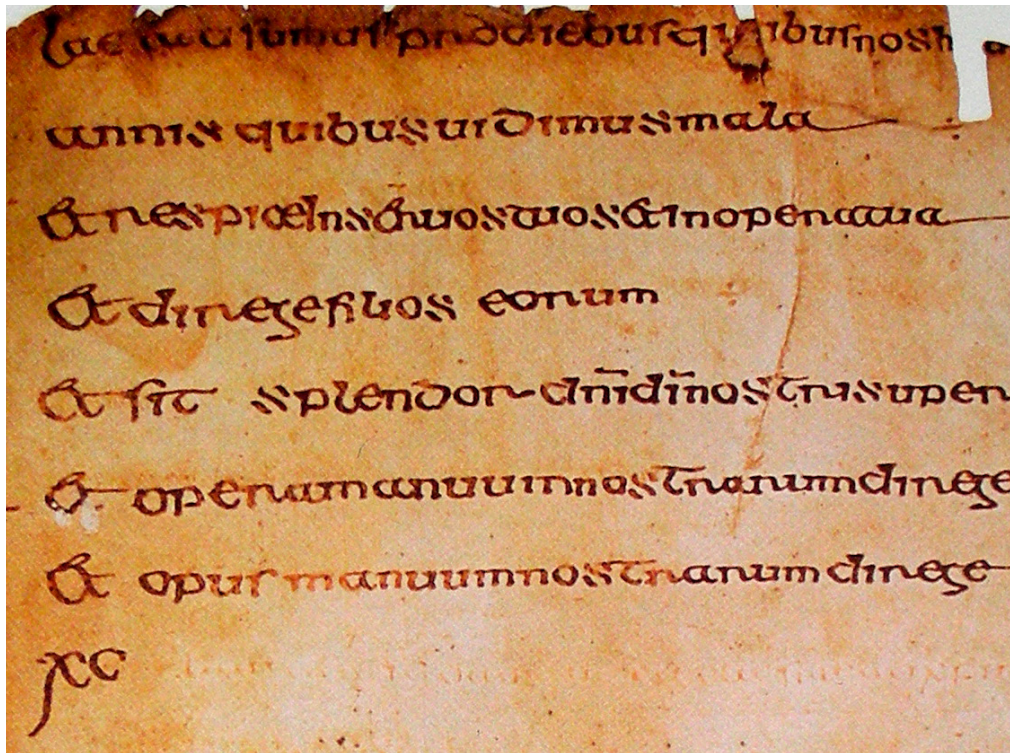 laetati sumus pro diebus quibus nos h
annis quibus uidimus mala
Et respice in seruos tuos et in opera tua
Et direge filios eorum
Et sit splendor dn̄i dī nostri super
Et opera manuum nostrarum direge
Et opus manuum nostrarum direge
xc